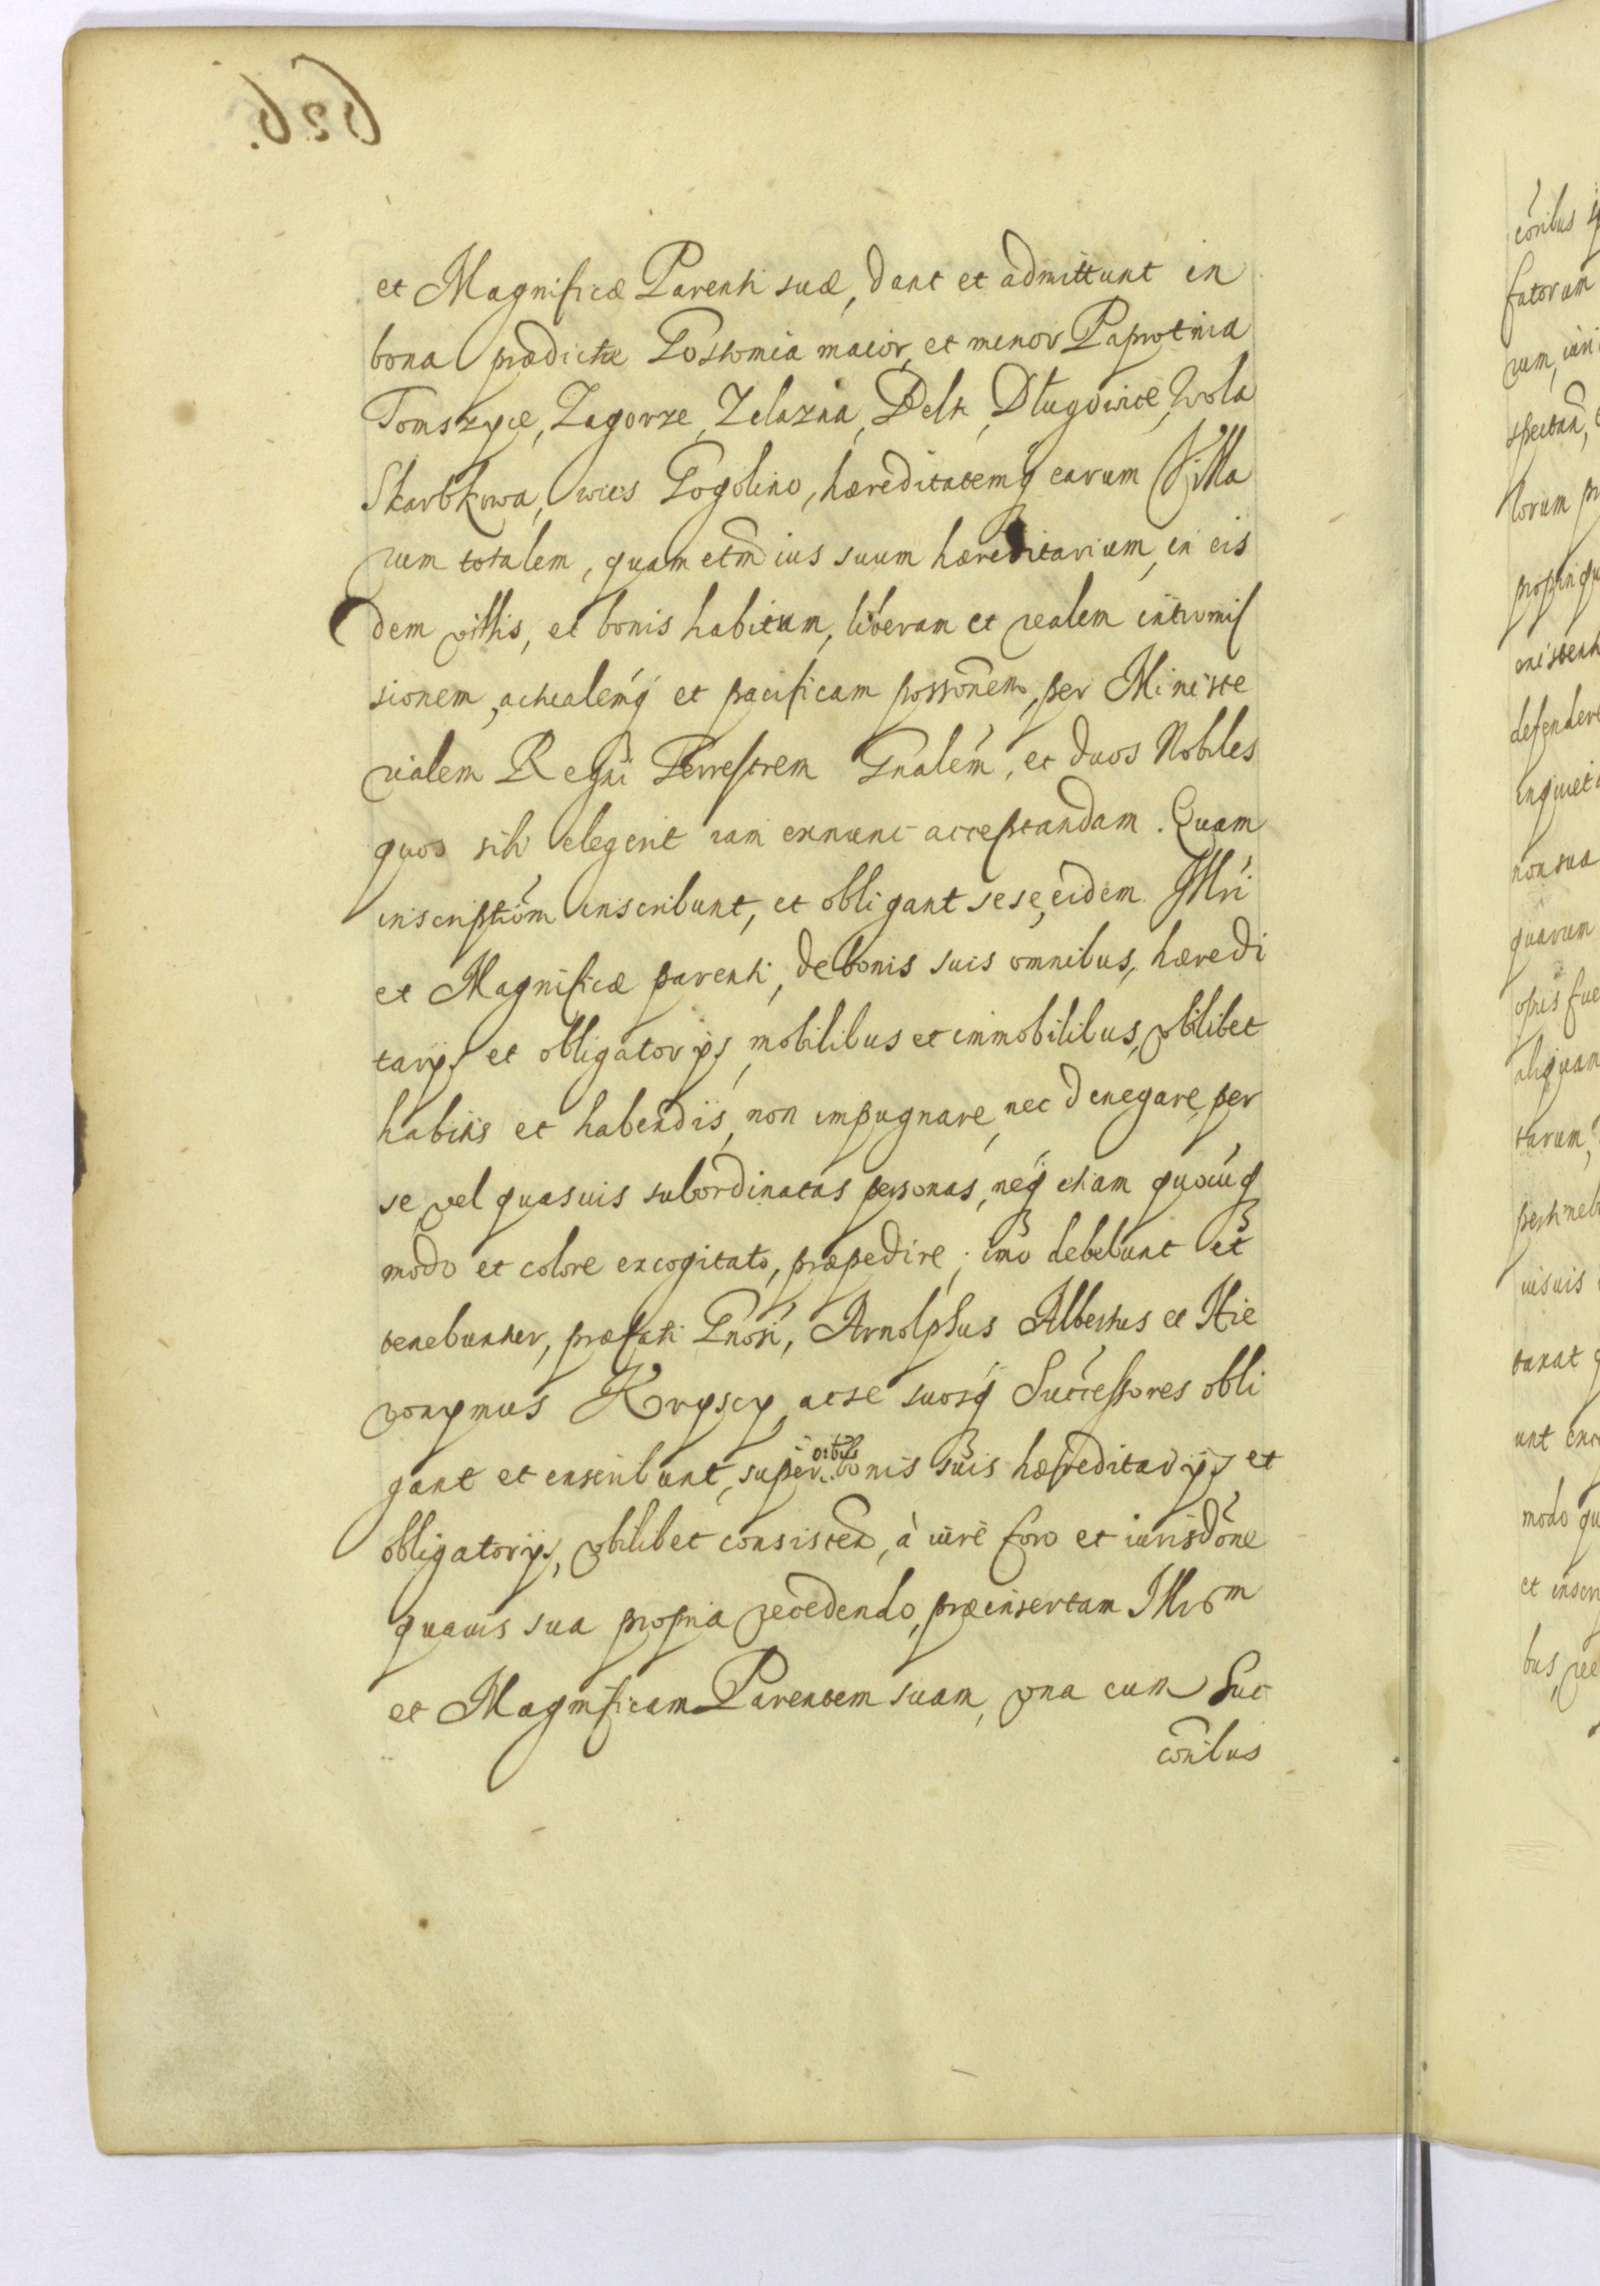 626.
et Magnificæ Parenti suæ, dant et admittunt in
bona prædicta Gostomia maior, et minor Paprotnia
Tomszyce, Zagorze, Zelazna, Delk, Długowice, Wola
Skarbkowa, wies Gogolino, hæreditatemq́ earum Villa
rum totalem, quam etm̃ ius suum hæreditarium, in eis
dem villis, et bonis habitum, liberam et realem intromis
sionem, actualemq́ et pacificam possonẽm, per Ministe
rialem Regni Terrestrem Gnalém, et duos Nobiles
quos sibi elegerit iam exnunc acceptandam. Quam
inscriptióm inscribunt, et obligant sese, eidem Illri
et Magnificæ parenti, de bonis suis omnibus, hæredi
tarijs et obligatorijs, mobilibus et immobilibus, vbilibet
habitis et habendis, non impugnare, nec denegare, per
se vel quasuis subordinatas personas, neq́ etiam quocũq́
modo et colore excogitato, præpedire, imo debebunt et
tenebuntur, præfati Gnosi, Arnolphus Albertus et Hie
ronymus Kryscy, ac se suosq́ Successores obli
gant et inscribunt, super oĩbus bonis suis hæreditarijs et
obligatorijs, vbilibet consisteñ, à iure foro et iurisdõne
quauis sua propria recedendo, præinsertam Illrem
et Magnificam Parentem suam, vna cum Suc
coribus
cõribus
fatorum
rum, iuri
spectañ,
lorum
propinqu
existenti
defendere
inquiet
non sua
quarum
opus fue
aliquam
tarum,
pertineb
uisuis
tanat
unt
modo qu
et inscri
bus, re